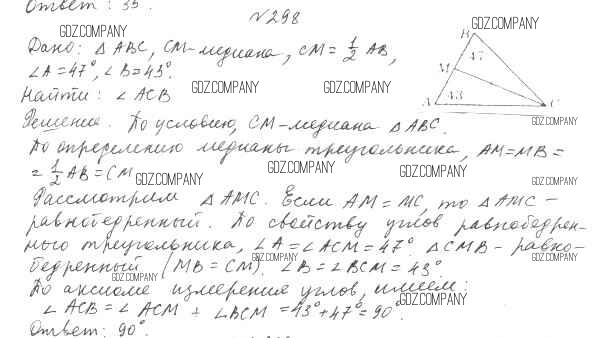 Ответ: 35°.
№298
GDZ.COMPANY GDZ.COMPANY
Дано: △ABC, CM-медиана, CM = 1/2 AB,
∠A = 47°, ∠B = 43°.
GDZ.COMPANY GDZ.COMPANY
Найти: ∠ACB
B
47
M
A 43 C
GDZ.COMPANY
Решение. По условию, CM-медиана △ABC.
По определению медианы треугольника, AM = MB =
= 1/2 AB = CM
GDZ.COMPANY GDZ.COMPANY GDZ.COMPANY
GDZ.COMPANY
Рассмотрим △AMC. Если AM = MC, то △AMC -
равнобедренный. По свойству углов равнобедрен-
ного треугольника, ∠A = ∠ACM = 47°. △CMB - равно-
GDZ.COMPANY GDZ.COMPANY GDZ.COMPANY
бедренный (MB = CM). ∠B = ∠BCM = 43°.
GDZ.COMPANY
По аксиоме измерения углов, имеем:
GDZ.COMPANY
∠ACB = ∠ACM + ∠BCM = 43° + 47° = 90°.
Ответ: 90°.